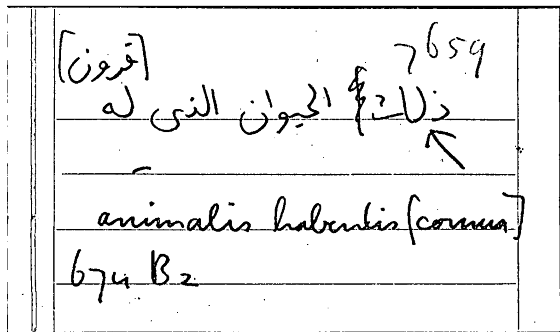 7659
[قرون]
ذلك الحيوان الذى له
animalis habentis [cornua]
674 B2